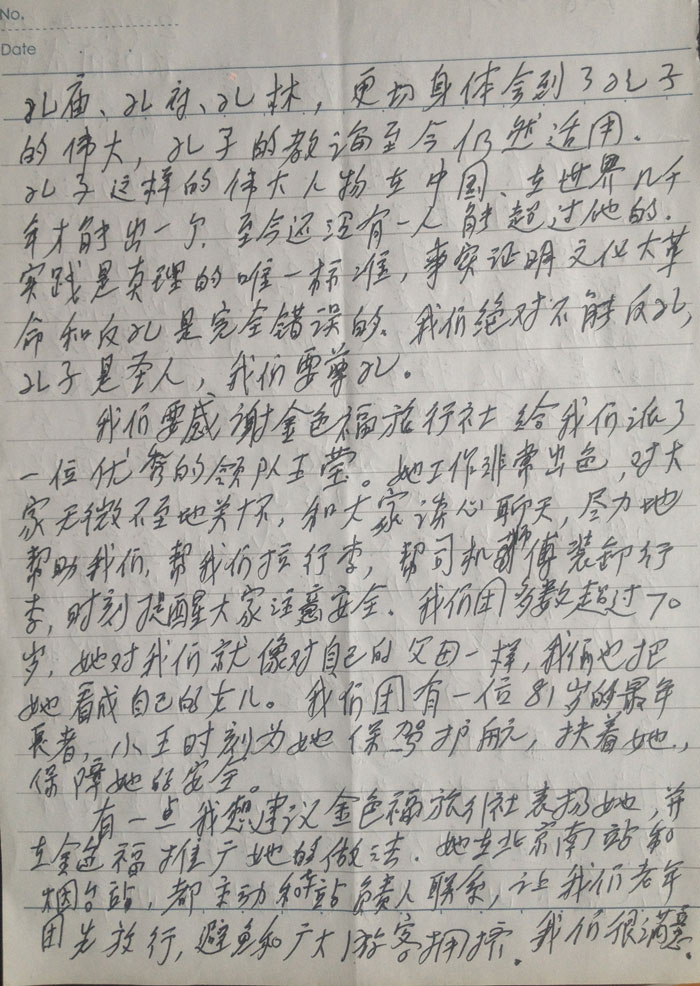 No.
Date
孔庙、孔府、孔林，更切身体会到了孔子
的伟大，孔子的教诲至今仍然适用。
孔子这样的伟大人物在中国、在世界几千
年才能出一个，至今还没有一人能超过他的。
实践是真理的唯一标准，事实证明文化大革
命和反孔是完全错误的。我们绝对不能反孔，
孔子是圣人，我们要尊孔。
我们要感谢金色福旅行社给我们派了
一位优秀的领队王莹。她工作非常出色，对大
家无微不至地关怀，和大家谈心聊天，尽力地
帮助我们，帮我们拉行李，帮司机师傅装卸行
李，时刻提醒大家注意安全。我们团多数超过70
岁，她对我们就像对自己的父母一样，我俩也把
她看成自己的女儿。我们团有一位81岁的最年
长者，小王时刻为她保驾护航，扶着她，
保障她的安全。
有一点我想建议金色福旅行社表扬她，并
在金色福推广她的做法。她在北京南站和
烟台站，都主动和车站负责人联系，让我们老年
团先放行，避免和广大游客拥挤。我们很满意。